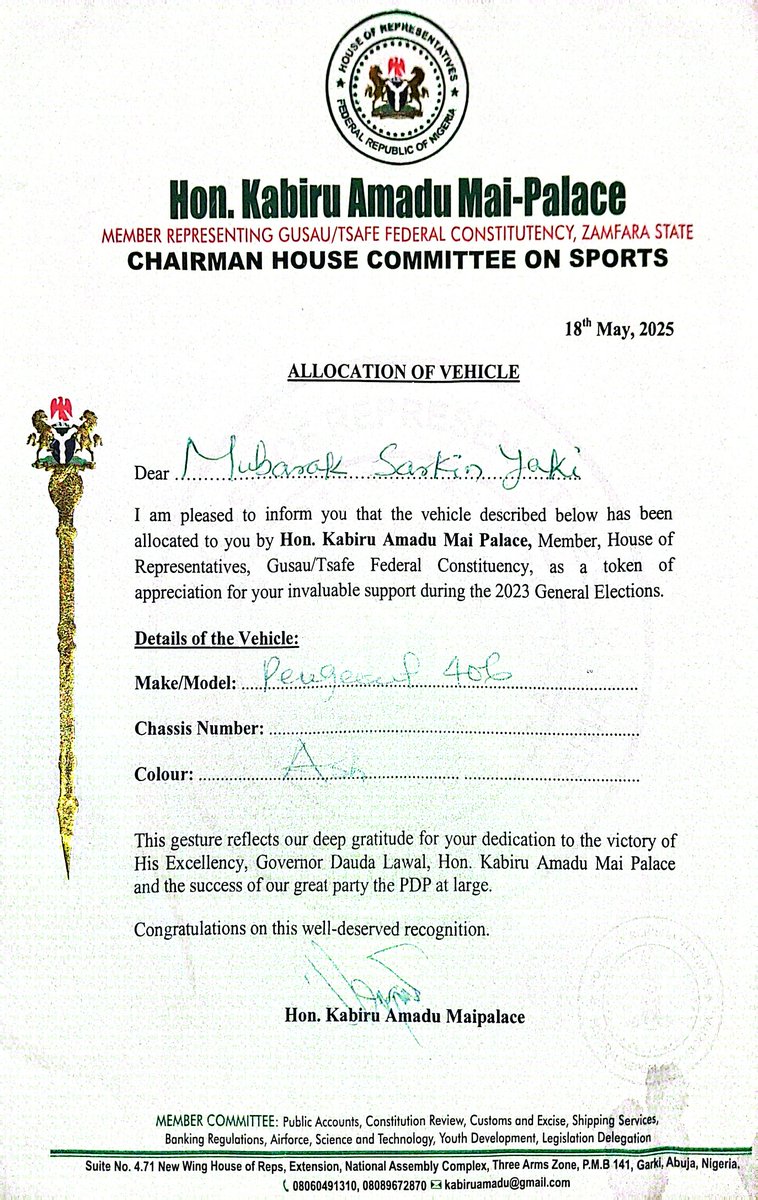 HOUSE OF REPRESENTATIVES
FEDERAL REPUBLIC OF NIGERIA
Hon. Kabiru Amadu Mai-Palace
MEMBER REPRESENTING GUSAU/TSAFE FEDERAL CONSTITUTENCY, ZAMFARA STATE
CHAIRMAN HOUSE COMMITTEE ON SPORTS
18th May, 2025
ALLOCATION OF VEHICLE
Dear Mubarak Sarkin Yaki
I am pleased to inform you that the vehicle described below has been
allocated to you by Hon. Kabiru Amadu Mai Palace, Member, House of
Representatives, Gusau/Tsafe Federal Constituency, as a token of
appreciation for your invaluable support during the 2023 General Elections.
Details of the Vehicle:
Make/Model: Peugeout 406
Chassis Number:
Colour: Ash
This gesture reflects our deep gratitude for your dedication to the victory of
His Excellency, Governor Dauda Lawal, Hon. Kabiru Amadu Mai Palace
and the success of our great party the PDP at large.
Congratulations on this well-deserved recognition.
Hon. Kabiru Amadu Maipalace
MEMBER COMMITTEE: Public Accounts, Constitution Review, Customs and Excise, Shipping Services,
Banking Regulations, Airforce, Science and Technology, Youth Development, Legislation Delegation
Suite No. 4.71 New Wing House of Reps, Extension, National Assembly Complex, Three Arms Zone, P.M.B 141, Garki, Abuja, Nigeria.
08060491310, 08089672870 kabiruamadu@gmail.com